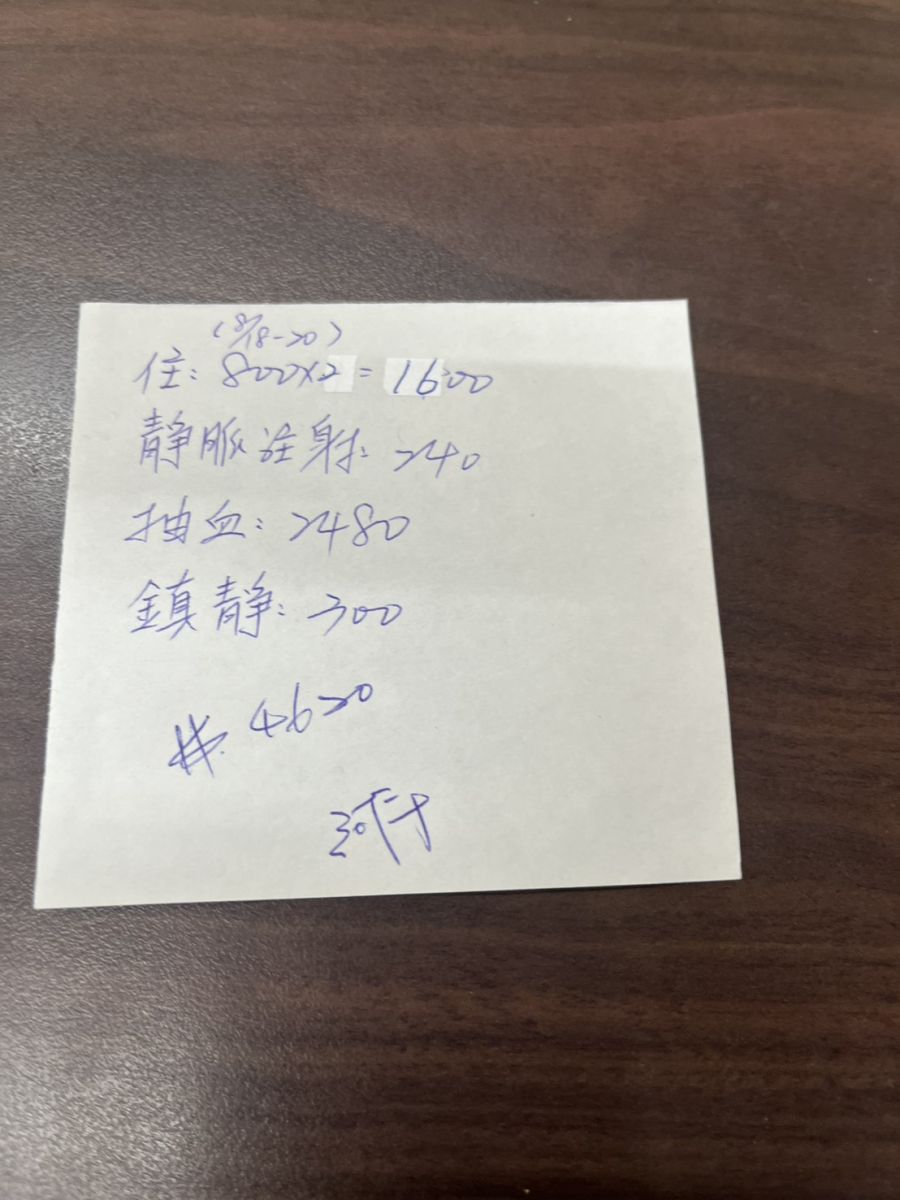 (8/18-20)
住: 800×2 = 1600
靜脈注射: 240
抽血: 2480
鎮靜: 300
共. 4620